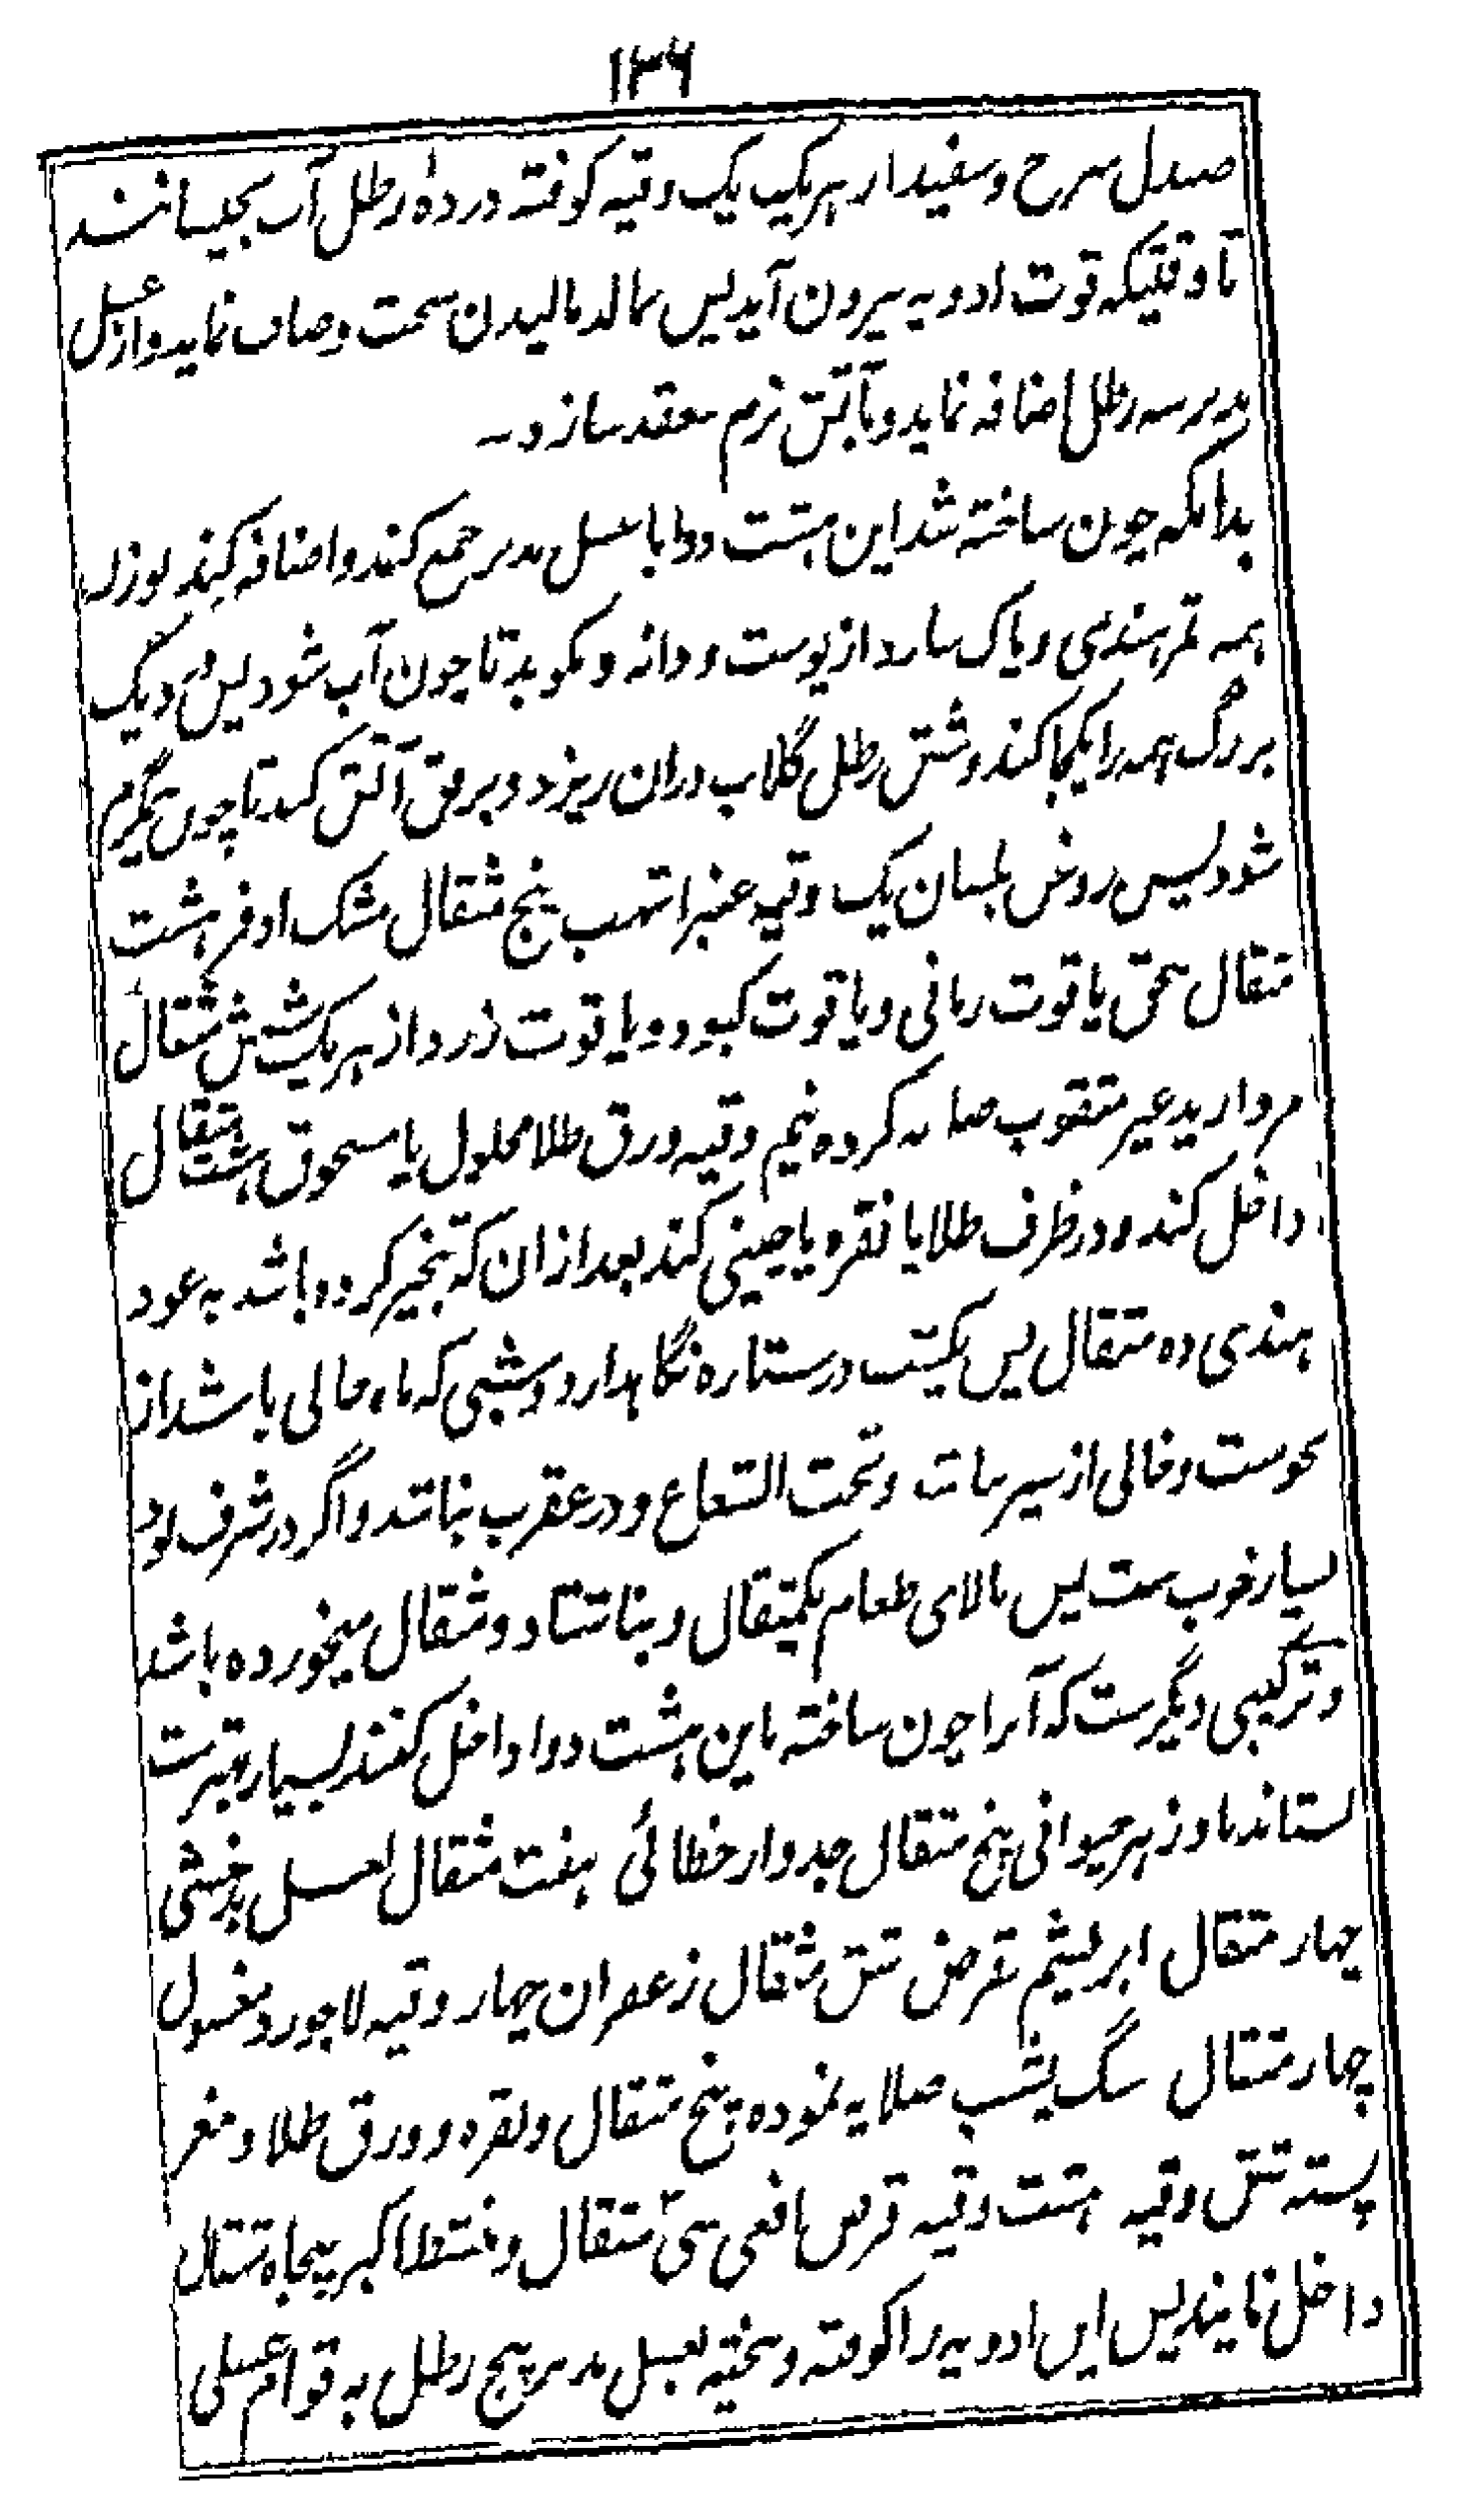 ۱۳۶
صندل سرخ و سفید از هریک یک وقیه کوفته در ده رطل آب بخیسانند
تا وقتیکه قوت ادویه بیرون آید پس بمالد مالیدن سخت و صاف نماید و از عسل
مدبر سه رطل اضافه نماید و بآتش نرم منعقد سازد
بدانکه چون ساخته شد این هشت دوا با عسل مدبر جمع کند و اضافه کند بوزن
همه تمر هندی و پاک سازد از پوست و دانه و بکوبد تا چون آب شود پس در دیگ
بزرگ همه را یکجا کند و شش رطل گلاب دران ریزد و برفق آتش کند تا چون نیگرم
شود پس روغن بلسان یک وقیه عنبر اشهب پنج مثقال مشک اذفر هشت
مثقال سحق یاقوت رمانی و یاقوت کبود و یاقوت زرد از هریک شش مثقال
مروارید غیر مثقوب صلایه کرده نیم وقیه ورق طلا محلول یا مسحوق هشت مثقال
داخل کند و در ظرف طلا یا نقره یا چینی کند بعد ازان که تبخیر کرده باشد به عود
هندی ده مثقال پس یکشب در ستاره نگاهدارد و شبی که ماه خالی باشد از
نحوست و خالی از سیر مات و تحت الشعاع و در عقرب نباشد و اگر در شرف بود
بسیار خوب ست پس بالای طعام یکمثقال و بناشتا دو مثقال میخورده باشد
و ترکیبی دیگرست که آنرا چون ساخته باین هشت دوا داخل کنند بسیار بهترست
بستاند پادزهر حیوانی پنج مثقال جدوار خطائی هفت مثقال لعل بدخشی
چهار مثقال ابریشم مقرض شش مثقال زعفران چهار وقیه لاجورد مغسول
چهار مثقال سنگ یشب صلایه نموده پنج مثقال و نقره و ورق طلا و مغز
پسته شش وقیه هشت وقیه قرص افعی سی مثقال و خنطا اکبر پنجاه مثقال
داخل نمایند پس این ادویه را کوفته و بیخته بعسل مدبر پنج رطل به قوام عسلی